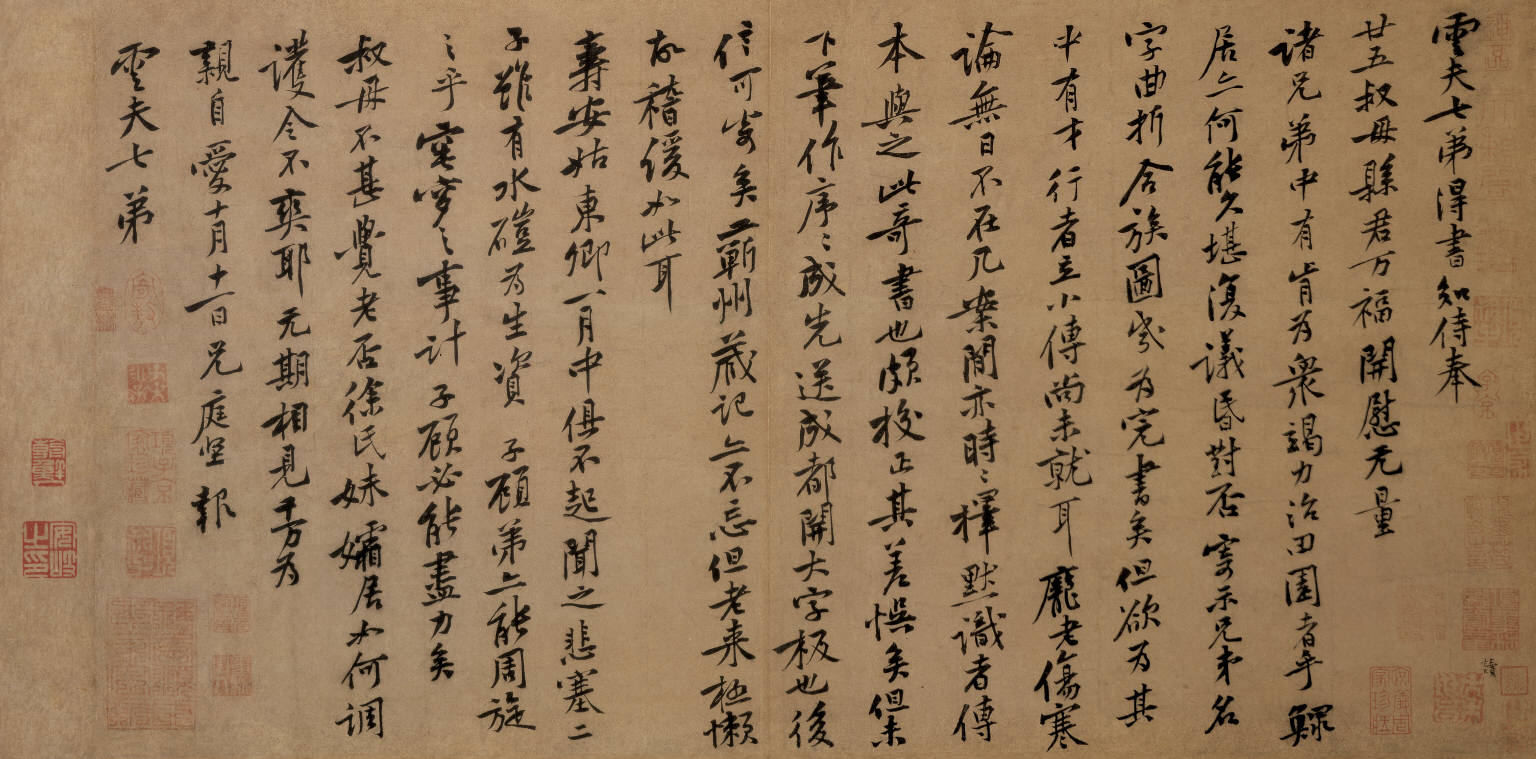 雲夫七弟得書知侍奉
廿五叔母縣君万福開慰无量
諸兄弟中有肯为衆竭力治田園者乎鰥
居亦何能久堪復議昏對否寄示兄弟名
字曲折合族圖岁为完書矣但欲为其
中有才行者立小傳尚未就耳龐老傷寒
論無日不在几案閒亦時〻擇默識者傳
本與之此奇書也頗校正其差悮矣但未
下筆作序〻成先送成都開大字板也後
信可寄矣王蘄州葴記亦不忘但老来極懶
故稽緩如此耳
壽安姑東卿一月中俱不起聞之悲塞二
子雖有水磑为生資子顧弟亦能周旋
之乎窀穸之事計子顧必能盡力矣
叔母不甚覺老否徐氏妹孀居如何調
護令不爽耶无期相見千万为
親自愛十月十一日兄庭坚報
雲夫七弟